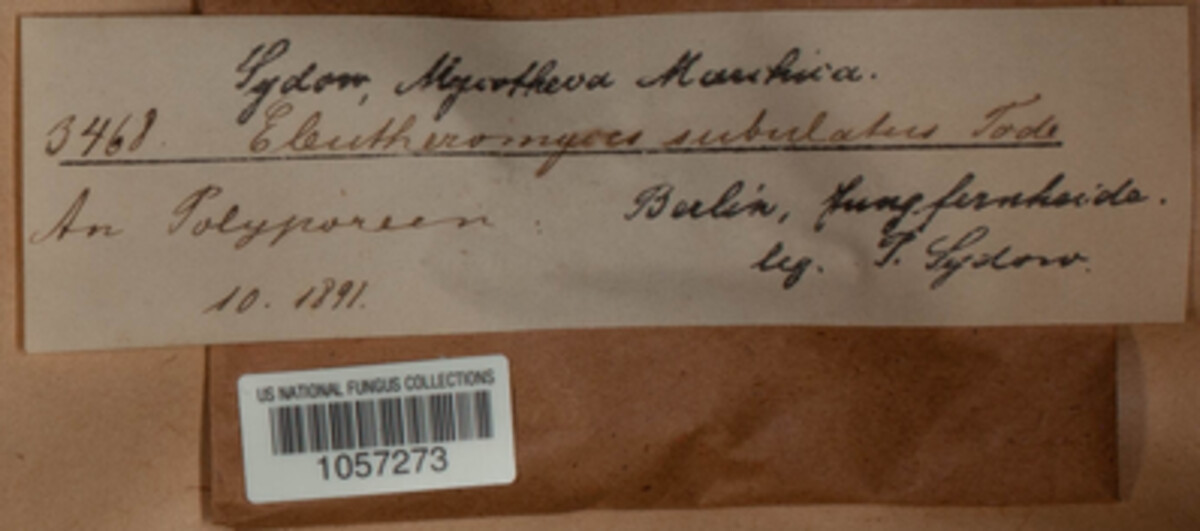 Sydow, Mycotheca Marchica.
3468. Eleutheromyces subulatus Tode
An Polyporeen. Berlin, Jungfernheide.
10. 1891. leg. P. Sydow.
US NATIONAL FUNGUS COLLECTIONS
1057273